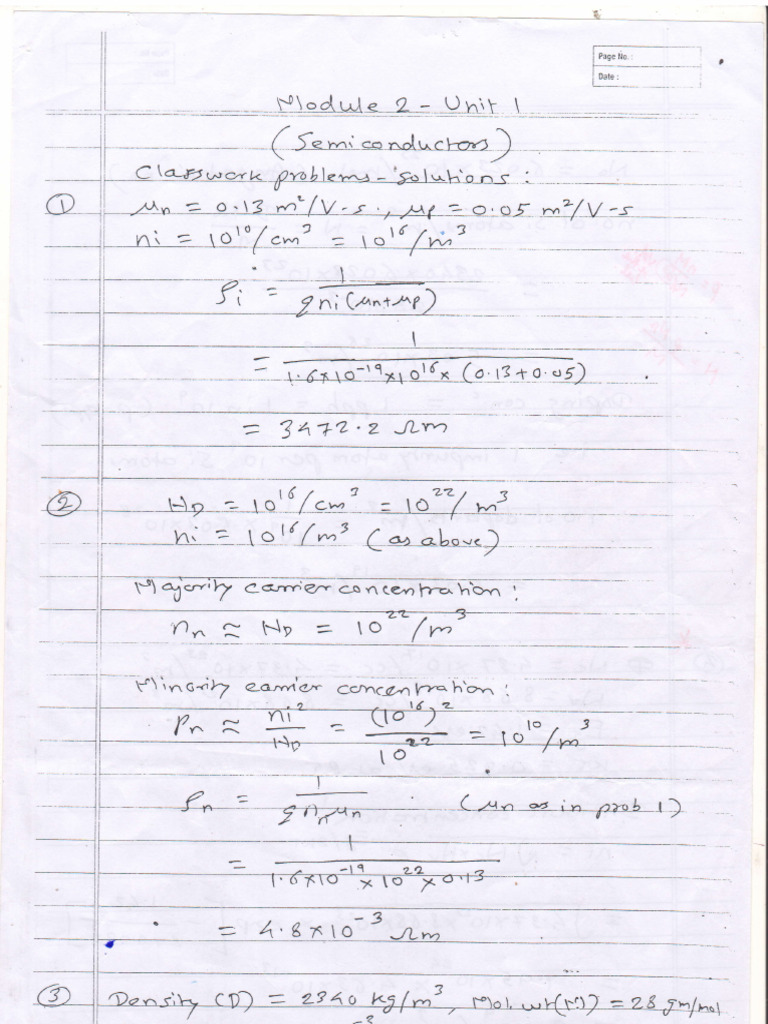 Page No. :
Date :
Module 2 - Unit 1
(Semiconductors)
Classwork problems - solutions :
① μn = 0.13 m²/V-s , μp = 0.05 m²/V-s
ni = 10¹⁰/cm³ = 10¹⁶/m³
ρi = 1 / q ni (μn+μp)
= 1 / 1.6×10⁻¹⁹ ×10¹⁶ × (0.13+0.05)
= 3472.2 Ωm
② ND = 10¹⁶/cm³ = 10²²/m³
ni = 10¹⁶/m³ (as above)
Majority carrier concentration :
nn ≃ ND = 10²²/m³
Minority carrier concentration :
Pn ≃ ni²/ND = (10¹⁶)²/10²² = 10¹⁰/m³
ρn = 1 / q nn μn (μn as in prob 1)
= 1 / 1.6×10⁻¹⁹ ×10²² ×0.13
= 4.8×10⁻³ Ωm
③ Density (D) = 2340 kg/m³, Mol. wt(M) = 28 gm/mol